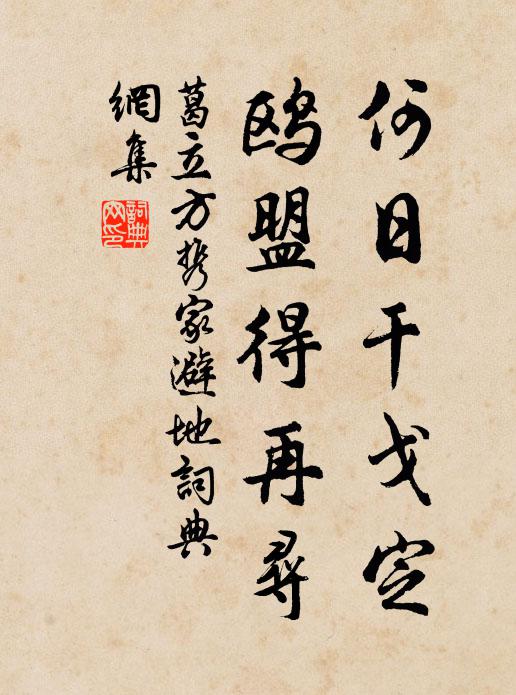 何日干戈定
鸥盟得再尋
葛立方携家避地詞典
網集
詞典
网印